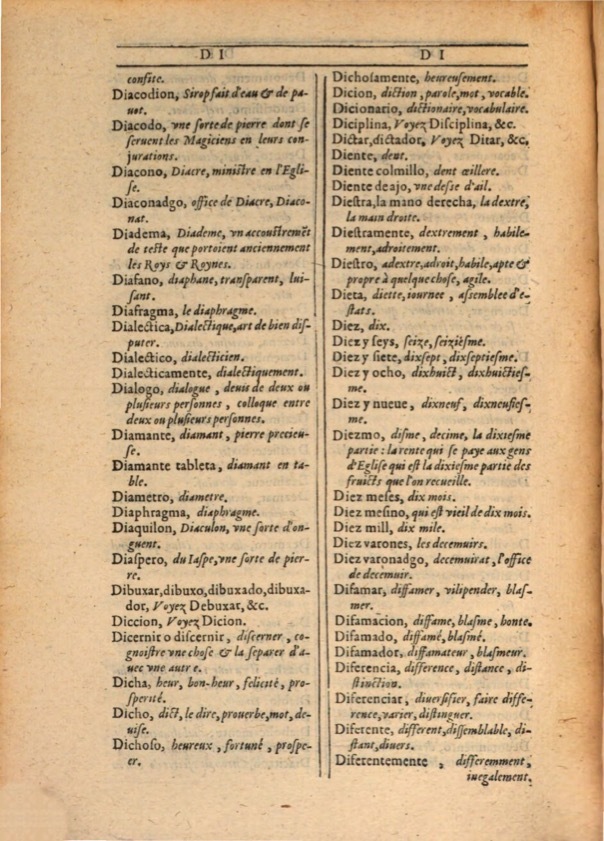 D I
confite.
Diacodion, Sirop fait d'eau & de pa-
uot.
Diacodo, vne sorte de pierre dont se
seruent les Magiciens en leurs con-
jurations.
Diacono, Diacre, ministre en l'Egli-
se.
Diaconadgo, office de Diacre, Diaco-
nat.
Diadema, Diademe, vn accoustremẽt
de teste que portoient anciennement
les Roys & Roynes.
Diafano, diaphane, transparent, lui-
sant.
Diafragma, le diaphragme.
Dialectica, Dialectique, art de bien dis-
puter.
Dialectico, dialecticien.
Dialecticamente, dialectiquement.
Dialogo, dialogue, deuis de deux ou
plusieurs personnes, colloque entre
deux ou plusieurs personnes.
Diamante, diamant, pierre precieu-
se.
Diamante tableta, diamant en ta-
ble.
Diametro, diametre.
Diaphragma, diaphragme.
Diaquilon, Diaculon, vne sorte d'on-
guent.
Diaspero, du Iaspe, vne sorte de pier-
re.
Dibuxar, dibuxo, dibuxado, dibuxa-
dor, Voyez Debuxar, &c.
Diccion, Voyez Dicion.
Dicernir o discernir, discerner, co-
gnoistre vne chose & la separer d'a-
uec vne autre.
Dicha, heur, bon-heur, felicité, pro-
sperité.
Dicho, dict, le dire, prouerbe, mot, de-
uise.
Dichoso, heureux, fortuné, prospe-
er.
D I
Dichosamente, heureusement.
Dicion, diction, parole, mot, vocable.
Dicionario, dictionaire, vocabulaire.
Diciplina, Voyez Disciplina, &c.
Dictar, dictador, Voyez Ditar, &c.
Diente, dent.
Diente colmillo, dent œillere.
Diente de ajo, vne desse d'ail.
Diestra, la mano derecha, la dextre,
la main droite.
Diestramente, dextrement, habile-
ment, adroitement.
Diestro, adextre, adroit, habile, apte &
propre à quelque chose, agile.
Dieta, diette, iournee, assemblee d'e-
stats.
Diez, dix.
Diez y seys, seize, seiziesme.
Diez y siete, dixsept, dixseptiesme.
Diez y ocho, dixhuict, dixhuicties-
me.
Diez y nueue, dixneuf, dixneufies-
me.
Diezmo, disme, decime, la dixiesme
partie : la rente qui se paye aux gens
d'Eglise qui est la dixiesme partie des
fruicts que l'on recueille.
Diez meses, dix mois.
Diez mesino, qui est vieil de dix mois.
Diez mill, dix mile.
Diez varones, les decemuirs.
Diez varonadgo, decemuirat, l'office
de decemuir.
Difamar, diffamer, vilipender, blas-
mer.
Difamacion, diffame, blasme, honte.
Difamado, diffamé, blasmé.
Difamador, diffamateur, blasmeur.
Diferencia, difference, distance, di-
stinction.
Diferenciar, diuersifier, faire diffe-
rence, varier, distinguer.
Diferente, different, dissemblable, di-
stant, diuers.
Diferentemente, differemment,
inegalement.